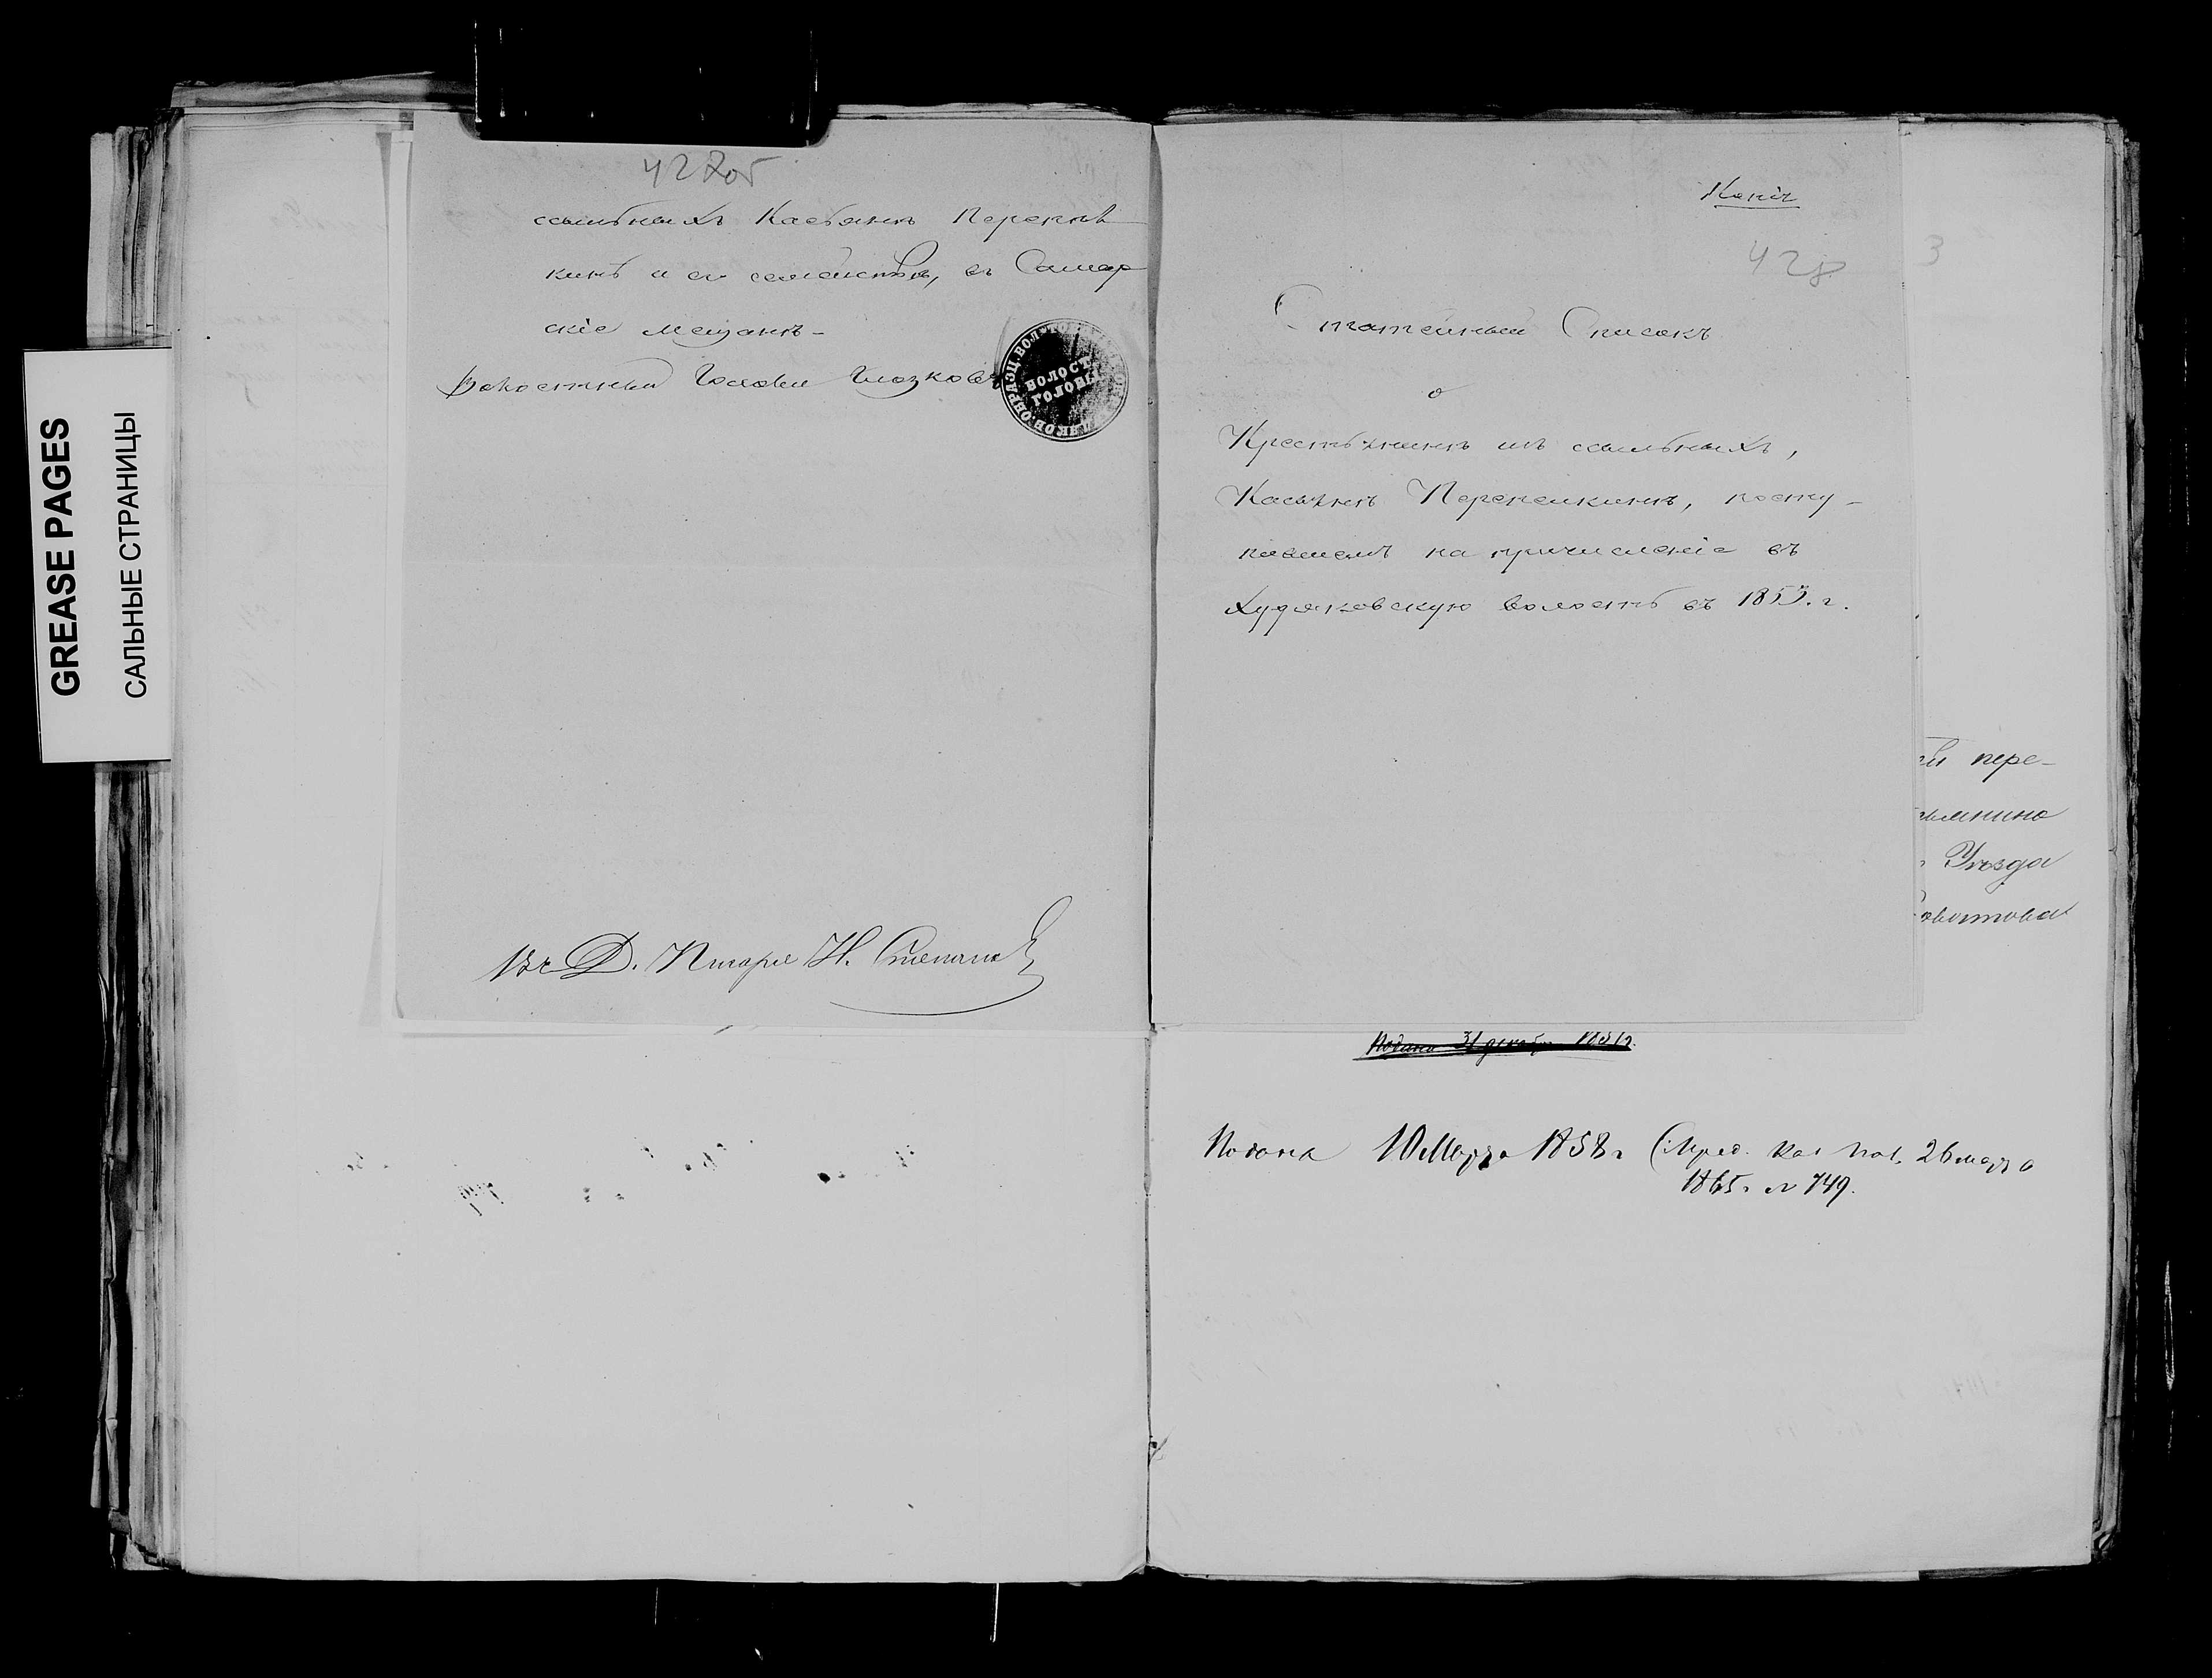 GREASE PAGES
САЛЬНЫЕ СТРАНИЦЫ
427об
ссыльныхъ Касьянѣ Перепел
кинѣ и его семействѣ, въ Самар
скіе мещанѣ-
Волостный Голова Глазковъ
ВОЛОСТ
ГОЛОВЫ
Вч Д. Писаря Н. Степановъ
Копія
428
3
Статейный Списокъ
о
Крестьянинѣ изъ ссыльныхъ,
Касьянѣ Перепелкинѣ, посту-
пившемъ на причисленіе въ
Худяковскую волость въ 1855. г.
пере-
Уѣзда
Подана 31 декабр 1851г.
Подана 10 Марта 1858 г (Пред. Каз Пал. 26 марта
1865 г. № 749.